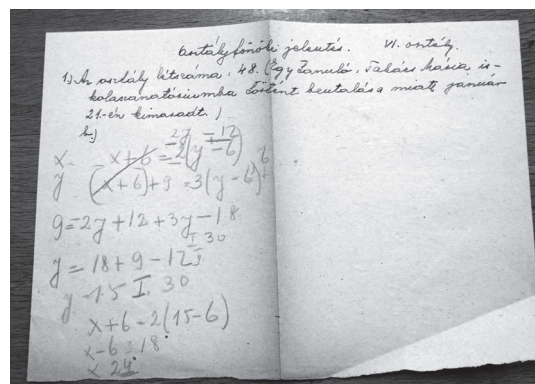 Osztályfőnöki jelentés. VI. osztály.
1.) Az osztály létszáma: 48. (Egy tanuló, Takács Mária is-
kolaszanatóriumba történt beutalása miatt január
21-én kimaradt.)
b.)
2y - 12
x - x+6 = 2(y - 6)
y (x+6)+9 = 3(y - 6)
9 = 2y + 12 + 3y - 18
I 30
y = 18 + 9 - 12
y = 15 I. 30
x + 6 = 2(15 - 6)
x - 6 = 18
x 24